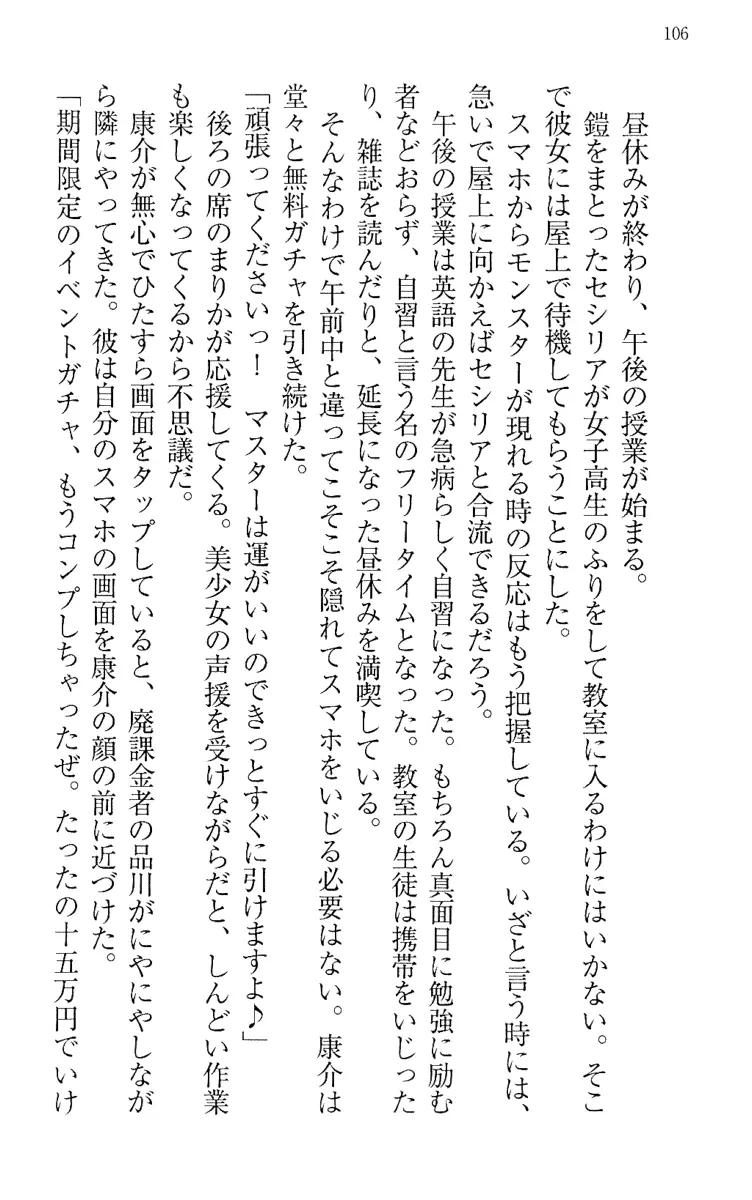 106
昼休みが終わり、午後の授業が始まる。
鎧をまとったセシリアが女子高生のふりをして教室に入るわけにはいかない。そこ
で彼女には屋上で待機してもらうことにした。
スマホからモンスターが現れる時の反応はもう把握している。いざと言う時には、
急いで屋上に向かえばセシリアと合流できるだろう。
午後の授業は英語の先生が急病らしく自習になった。もちろん真面目に勉強に励む
者などおらず、自習と言う名のフリータイムとなった。教室の生徒は携帯をいじった
り、雑誌を読んだりと、延長になった昼休みを満喫している。
そんなわけで午前中と違ってこそこそ隠れてスマホをいじる必要はない。康介は
堂々と無料ガチャを引き続けた。
「頑張ってくださいっ！　マスターは運がいいのできっとすぐに引けますよ♪」
後ろの席のまりかが応援してくる。美少女の声援を受けながらだと、しんどい作業
も楽しくなってくるから不思議だ。
康介が無心でひたすら画面をタップしていると、廃課金者の品川がにやにやしなが
ら隣にやってきた。彼は自分のスマホの画面を康介の顔の前に近づけた。
「期間限定のイベントガチャ、もうコンプしちゃったぜ。たったの十五万円でいけ